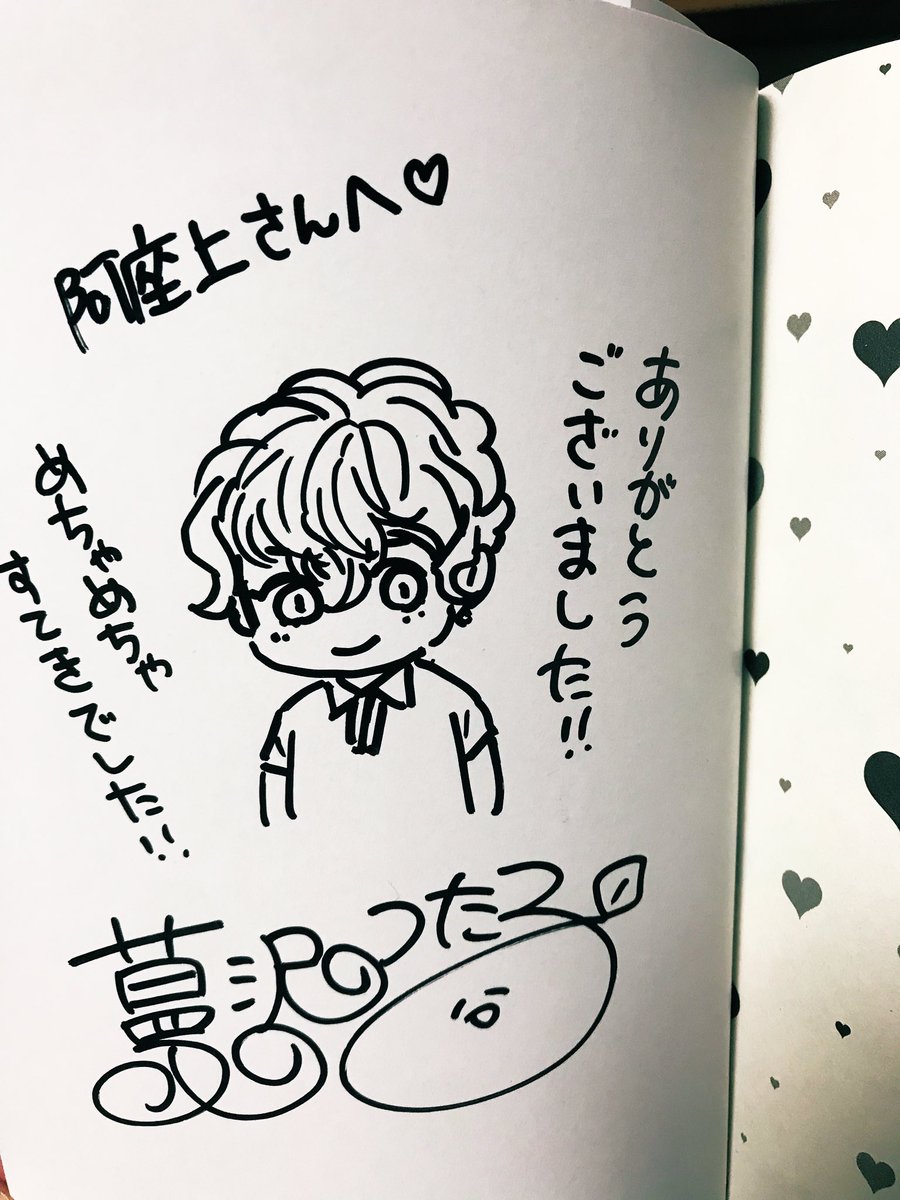 阿座上さんへ♡
ありがとう
ございました!!
めちゃめちゃ
すてきでした!!
蔓沢つた子